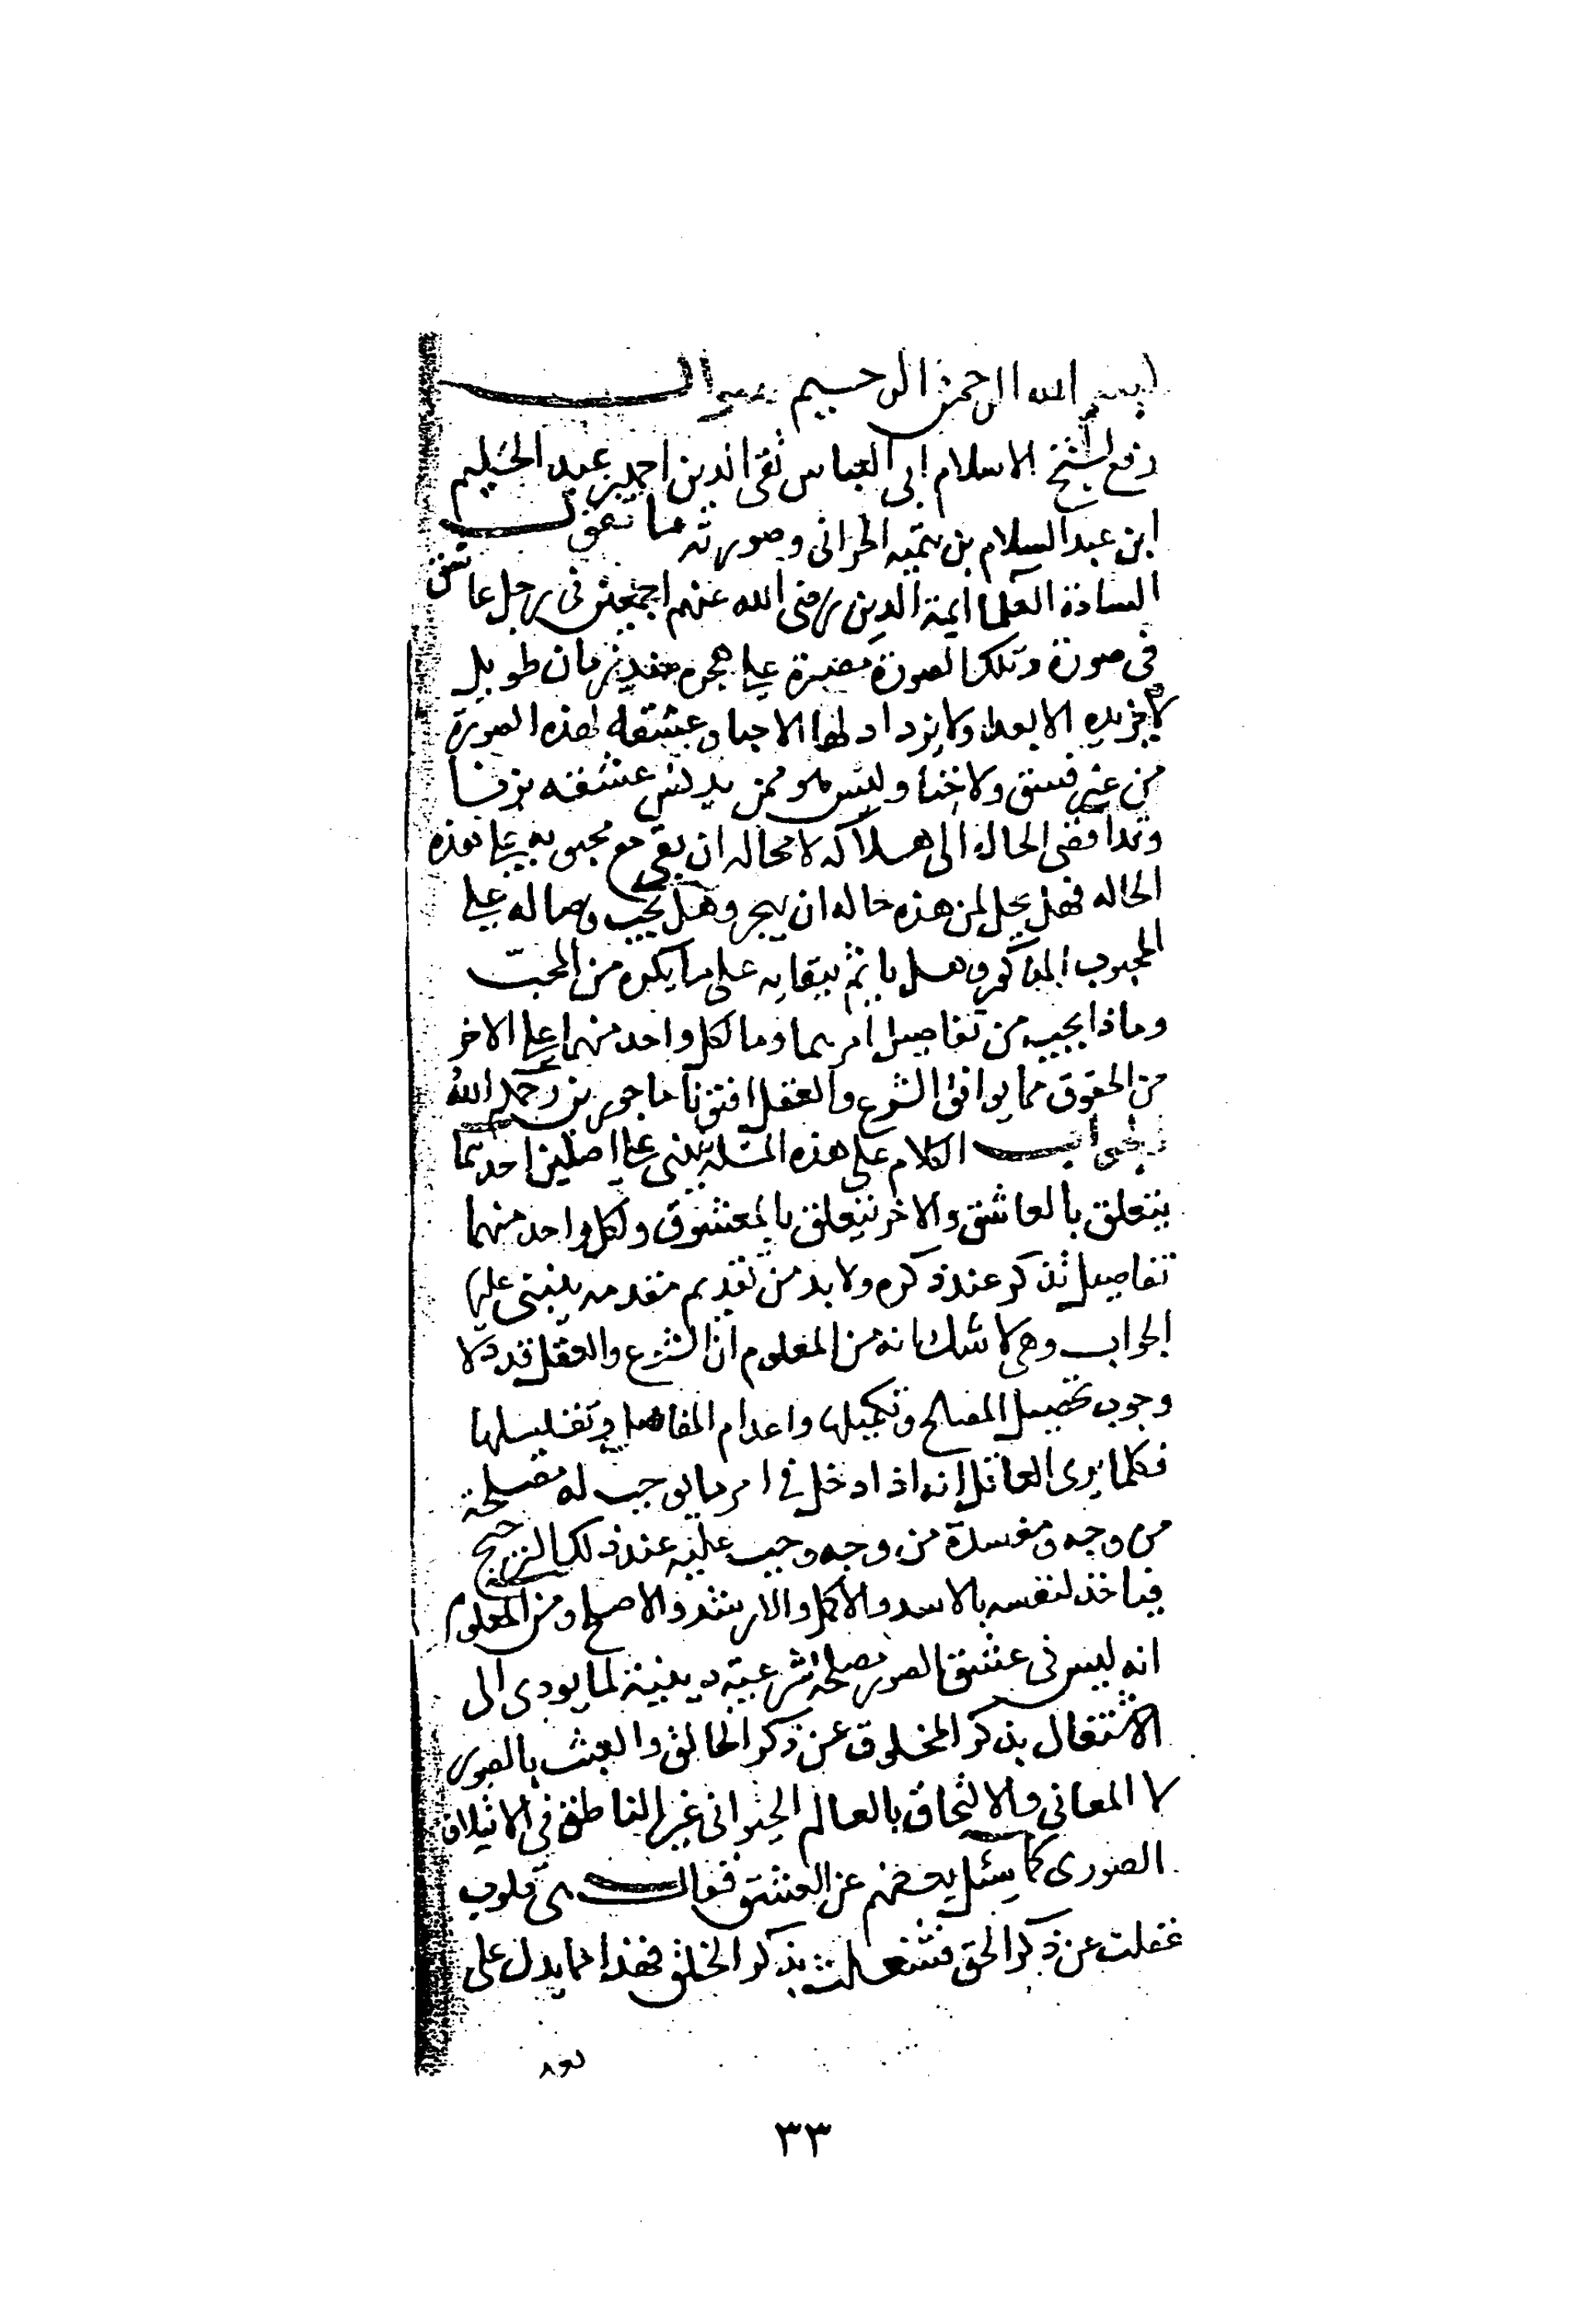 بسم الله الرحمن الرحيم سوال
رفع لشيخ الاسلام ابى العباس تقى الدين احمد بن عبد الحليم
ابن عبد السلام بن تيميه الحرانى وصورته ما تقول
السادة العلما ايمة الدين رضى الله عنهم اجمعين فى رجل عاشق
فى صورة وتلك الصورة مصرة على هجره منذ زمان طويل
لا يزيده الا بعدا ولا يزداد لها الا حبا وعشقه لهذه الصورة
من غير فسق ولا خنا وليس هو ممن يدنس عشقه بزنا
وقد افضى الحال الى هلاكه لا محاله ان بقى مع محبوبه على هذه
الحاله فهل يحل لمن هذه حاله ان يهجر وهل يجب وصاله على
المحبوب المذكور وهل ياثم ببقايه على ما يكره من المحب
وماذا يجب من تفاصيل امرهما وما لكل واحد منهما على الاخر
من الحقوق مما يوافق الشرع والعقل افتونا ماجورين رحمكم الله
الجواب الكلام على هذه المسله ينبنى على اصلين احدهما
يتعلق بالعاشق والاخر يتعلق بالمعشوق ولكل واحد منهما
تفاصيل تذكر عند ذكره ولا بد من تقديم مقدمه ينبنى عليها
الجواب وهى لا شك انه من المعلوم ان الشرع والعقل قد دلا
وجوب تحصيل المصالح وتكميلها واعدام المفاسد وتقليلها
فكلما يرى العاقل انه اذا دخل فى امر ما يوجب له مصلحة
من وجه ومفسدة من وجه وجب عليه عند ذلك الترجيح
فياخذ لنفسه بالاسد والاكمل والارشد والاصلح ومن المعلوم
انه ليس فى عشق الصور مصلحة شرعية دينية لما يودى الى
الاشتغال بذكر المخلوق عن ذكر الخالق والعبث بالصور
لا المعانى والالتحاق بالعالم الحيوانى غير الناطق فى الائتلاف
الصورى كما سئل بعضهم عن العشق فقال هى قلوب
غفلت عن ذكر الحق فشغلت بذكر الخلق فهذا مما يدل على
٣٣